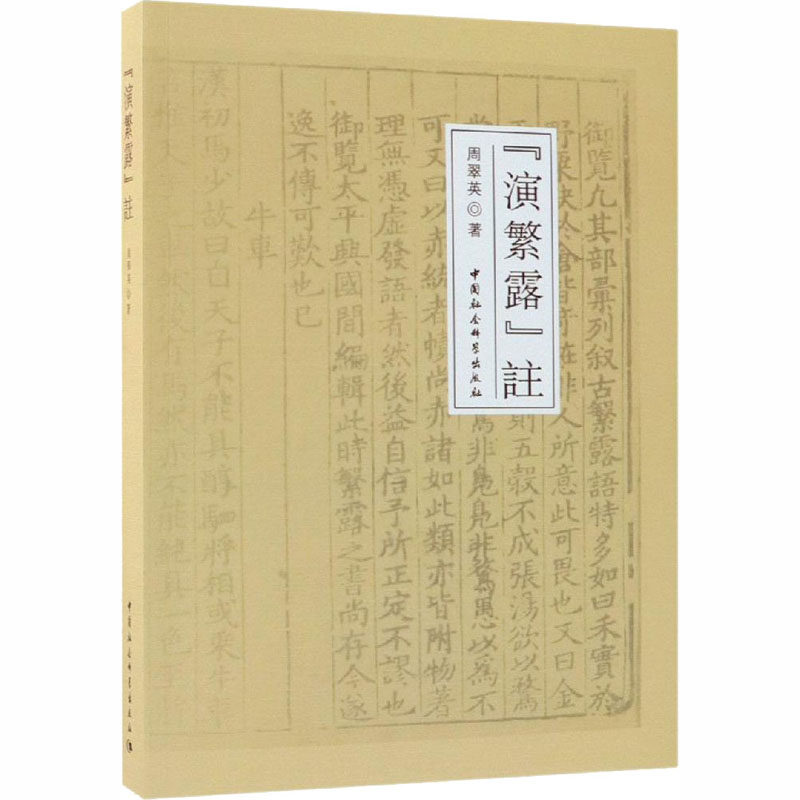 『演繁露』註
周翠英◎著
中国社会科学出版社
『演繁露』註
周翠英◎著
中国社会科学出版社
御覽凡其部彙列叙古繁露語特多如曰禾實於
野粟缺於倉皆奇怪非人所意此可畏也又曰金
則五穀不成張湯欲以鶩
爲非鳧鳧非鶩愚以爲不
可又曰以赤統者幘尚赤諸如此類亦皆附物著
理無憑虛發語者然後益自信予所正定不謬也
御覽太平興國間編輯此時繁露之書尚存今遂
逸不傳可歎也已
牛車
漢初馬少故曰自天子不能具醇駟將相或乘牛